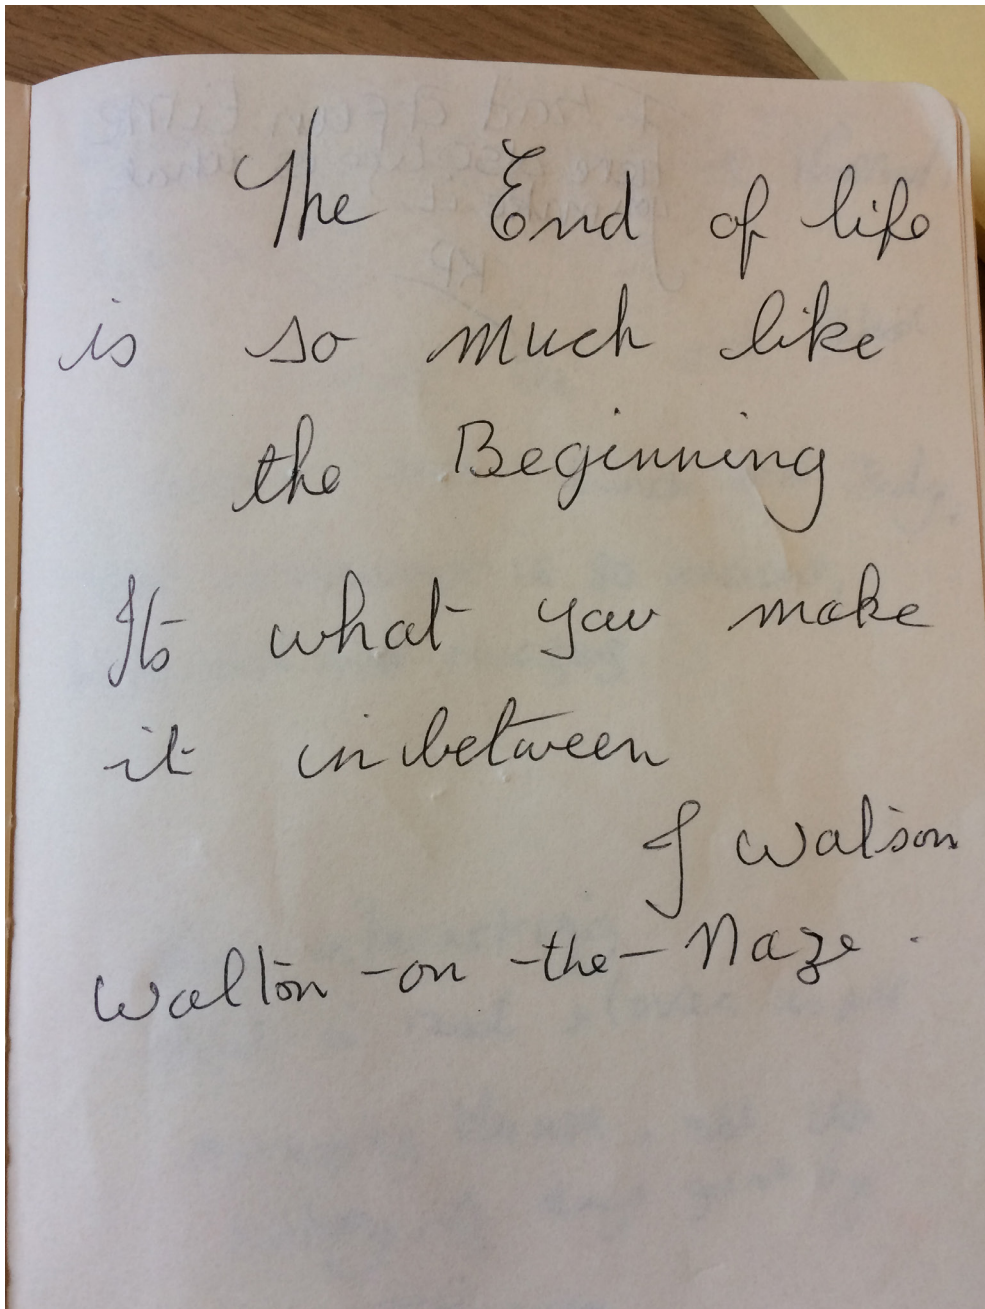 The End of life
is so much like
the Beginning
Its what you make
it inbetween
J Watson
Walton-on-the-Naze.